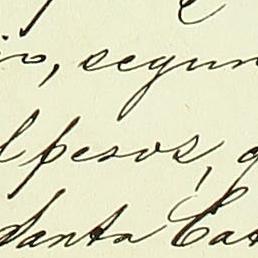 io, segun
l pesos,
Santa Cat